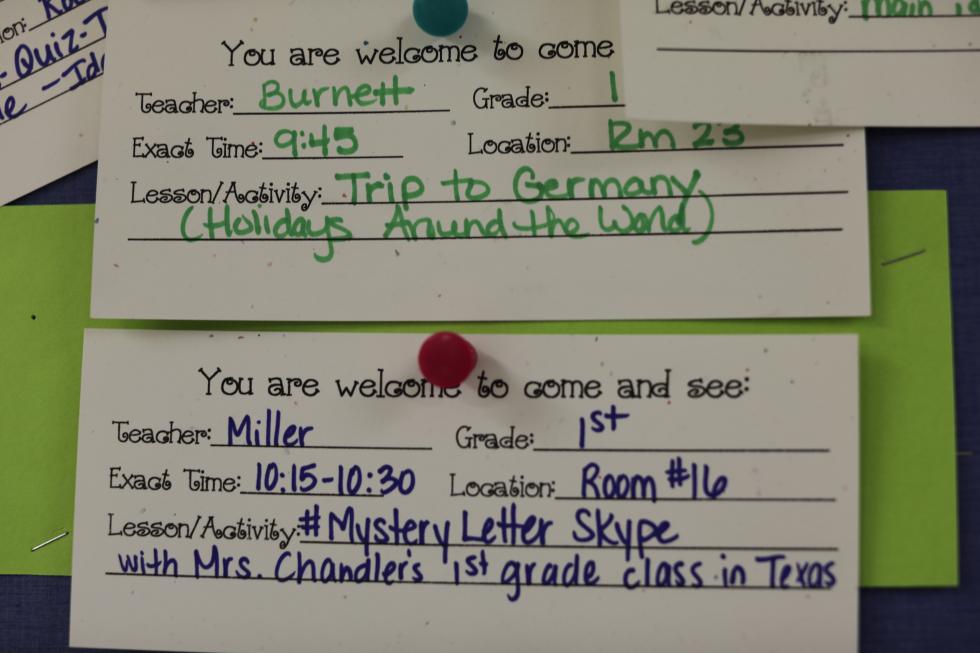 Lesson/Activity: main
You are welcome to come
Teacher: Burnett Grade: 1
Exact Time: 9:45 Location: Rm 23
Lesson/Activity: Trip to Germany
(Holidays Around the World)
You are welcome to come and see:
Teacher: Miller Grade: 1st
Exact Time: 10:15-10:30 Location: Room #16
Lesson/Activity: #Mystery Letter Skype
with Mrs. Chandler's 1st grade class in Texas
-Quiz-T